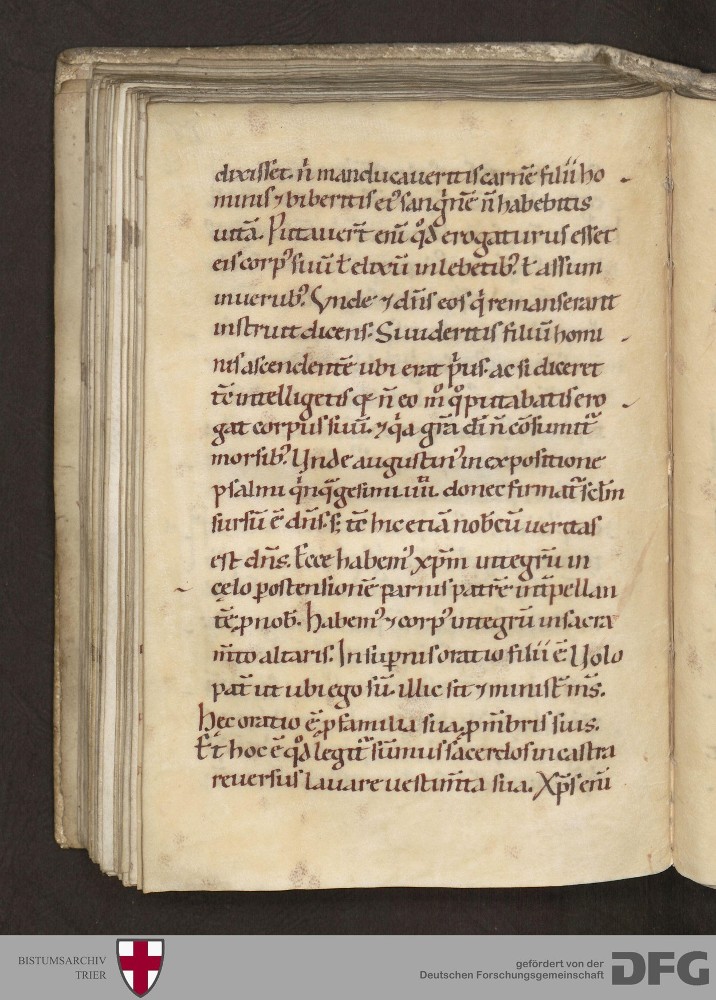 dixisset. n̄ manducaveritis carnē filii ho
minis ⁊ biberitis ei᾽ sanguinē n̄ habebitis
vitā. Putaver̄t enī qd̄ erogaturus esset
eis corp᾽ suū ł elixū in lebetib᾽. ł assum
in uerub᾽. Unde ⁊ dn̄s eos qͥ remanserant
instruit dicens. Si uideritis filiū homi
nis ascendentē ubi erat pͥus. ac si diceret
tc̄ intelligetis qꝫ n̄ eo mͦ qͦ putabatis ero
gat corpus suū. ⁊ qͥa gr̄a di n̄ cōsumit᾽
morsib᾽. Unde augustin᾽ in expositione
psalmi qͥnqͣgesimi iiii. donec firmat᾽ sc̄lm
sursū ē dn̄s. s; tc̄ hic etiā nob̄cū veritas
est dn̄s. Ecce habem᾽ xp̄m integrū in
cęlo ꝑ ostensionē patrē int̄pellan
tē ꝓ nob̄. Habem᾽ ⁊ corp᾽ integrū in sacra
m̄to altaris. Insup̄ oratio filii ē. Uolo
pat̄ ut ubi ego sū. illic sit ⁊ minist̄ m̄s.
Hęc oratio ē ꝓ familia sua. ꝓ m̄bris suis.
Et hoc ē qd̄ legit᾽ sūmus sacerdos in castra
reversus lavare vestim̄ta sua. Xp̄s enī
BISTUMSARCHIV
TRIER
gefördert von der
Deutschen Forschungsgemeinschaft
DFG